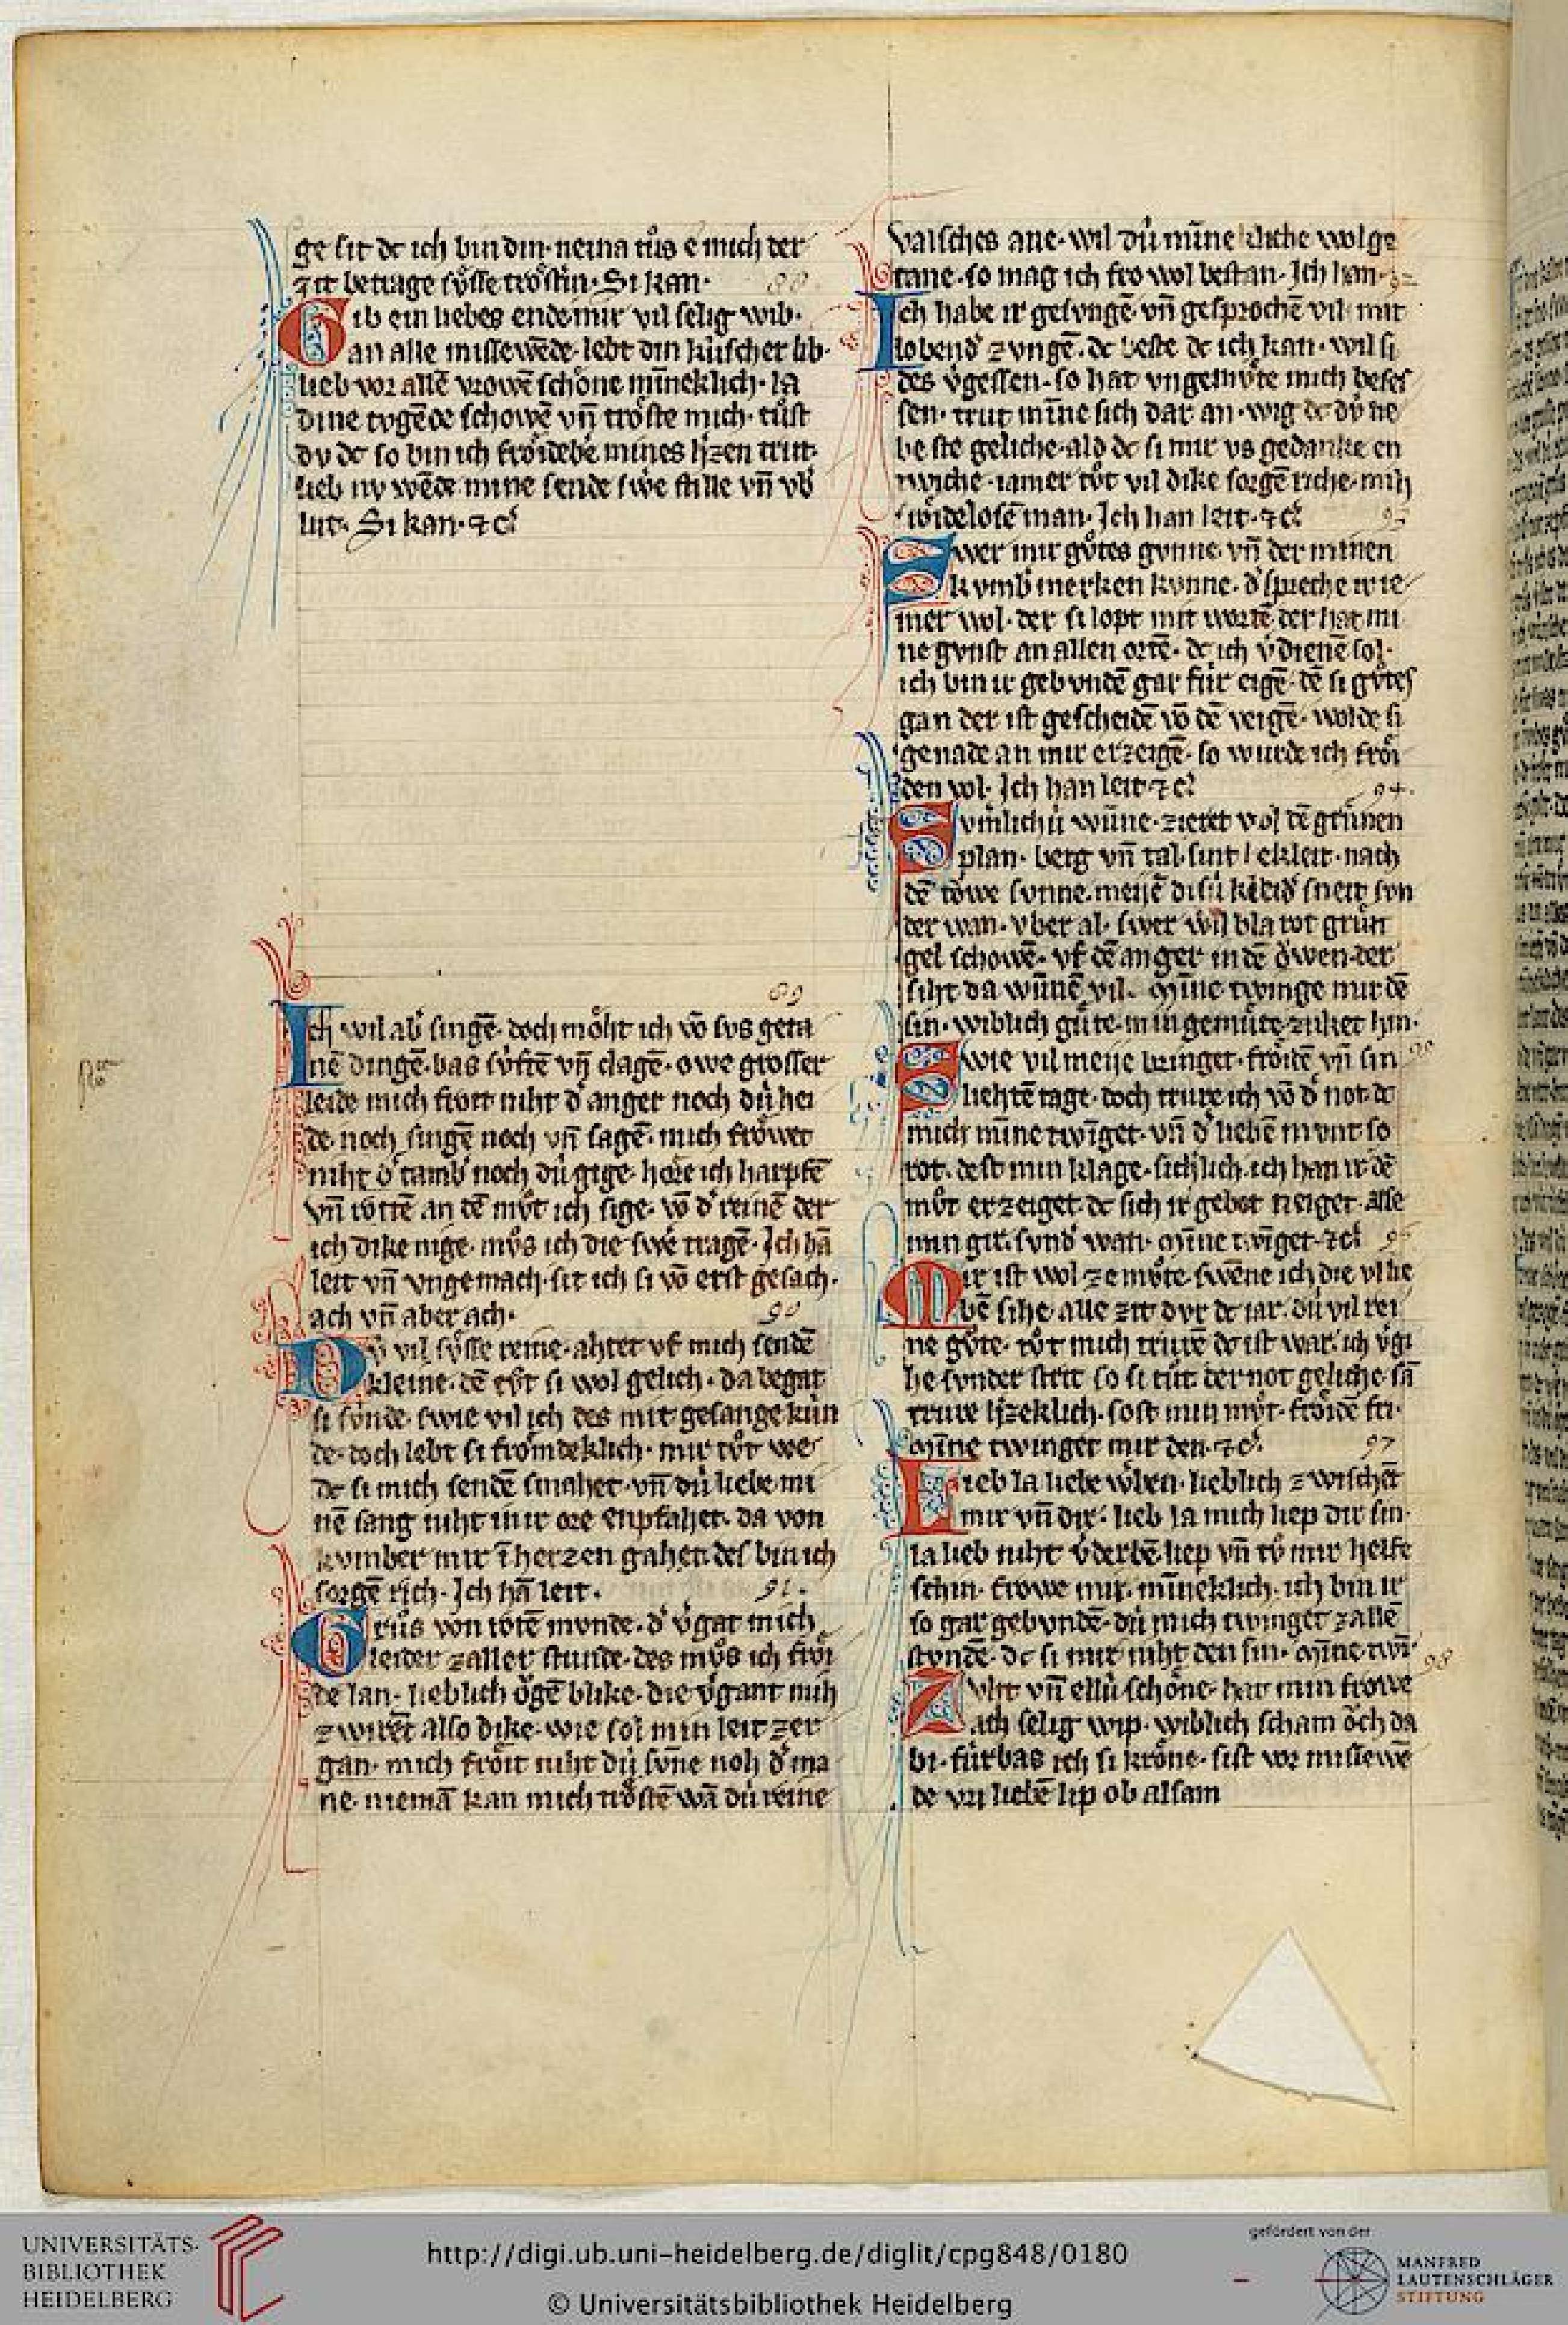 ge sit dc ich bin din· neina tuͦs e mich der
zit betrage suͤsse troͤstin· Si kan·
88
Gib ein liebes ende mir vil selig wib·
an alle missewēde· lebt din kúscher lib·
lieb vor allē vrowē schoͤne mīneklich· la
dine tvgēde schowē vn̄ troͤste mich· tuͦst
dv dc so bin ich
mines h͛zen trut·
lieb nv wēde mine sende swe͛ stille vn̄ vb͛
lut· Si kan· ⁊ c͛
89
Ich wil ab͛ singē· doch moͤht ich vō svs geta
nē dingē· bas svftē vn̄ clagē· owe grosser
leide mich froͤit niht d͛ anger noch dú hei
de· noch singē noch vn̄ sagē· mich froͤwet
niht d͛ tamb͛ noch dú gige· hoͤre ich harpfē
vn̄ rottē an dē muͦt ich sige· vō d͛ reinē der
ich dike nige· muͦs ich die swe͛ tragē· Ich hā
leit vn̄ vngemach· sit ich si vō erst gesach·
ach vn̄ aber ach·
90
Dv́ vil suͤsse reine· ahtet vf mich sendē
kleine· dē tuͦt si wol gelich· da begat
si súnde· swie vil ich des mit gesange kún
de· doch lebt si froͤmdeklich· mir tuͦt we
dc si mich sendē smahet· vn̄ dú liebe mi
nē sang niht in ir ore enpfahet· da von
kvmber mir ī herzen gahet· des bin ich
sorgē rich· Ich hā leit·
91·
Gruͦs von rotē mvnde· d͛ v͛gat mich
leider zaller stunde· des muͦs ich froͤi
de lan· lieblich oͮgē blike· die v͛gant mih
zwirēt also dike· wie sol min leit zer
gan· mich froͤit niht dú svn̄e noh d͛ ma
ne· niemā kan mich troͤstē wā dú reine
valsches ane· wil dú mīne
wolge
tane· so mag ich fro wol bestan· Ich han·
92
Ich habe ir gesvngē· vn̄ gesprochē vil· mit
lobend͛ zvngē· dc beste dc ich kan· wil si
des v͛gessen· so hat vngemvͤte mich beses
sen· trut mīne sich dar an· wig dc dv́ ne
be ste geliche· ald dc si mir vs gedanke en
twiche· iamer toͤt vil dike sorgē riche· mih
froͤidelosē man· Ich han leit· ⁊ c͛
93
Swer mir guͦtes gvnne· vn̄ der minen
kvmb͛ merken kvnne· d͛ spreche ir ie
mer wol· der si lopt mit wortē· der hat mi
ne gvnst an allen ortē· dc ich v͛dienē sol·
ich bin ir gebvndē gar fúr eigē· dē si guͦtes
gan der ist gescheidē vō dē veigē· wolde si
genade an mir erzeigē· so wurde ich froͤi
den vol· Ich han leit ⁊ c͛
94·
Svm̄lichú wūne· zieret wol dē gruͤnen
plan· berg vn̄ tal· sint bekleit· nach
dē towe svnne· meijē disú kleid͛ sneit svn
der wan· vber al· swer wil bla rot gruͤn
gel schowē· vf dē anger in dē oͮwen· der
siht da wūnē vil· Mīne twinge mir dē
sin· wiblich guͤte· min gemuͤte· zuket hin·
95
Swie vil meije bringet· froͤidē vn̄ sin
liehtē tage· doch trure ich vō d͛ not· dc
mich mīne twīget· vn̄ d͛ liebē mvnt so
rot· dest min klage· sich͛lich· ich han ir dē
muͦt erzeiget· dc sich ir gebot neiget· alse
min git· svnd͛ wan· Mīne twīget· ⁊ c͛
96
Mir ist wol ze muͦte· swēne ich die vil lie
bē sihe· alle zit dvr dc iar· dú vil rei
ne guͦte· tuͦt mich trurē dc ist war· ich v͛gi
he svnder strit so si tuͦt· der not geliche· sā
trure h͛zeklich· sost min muͦt· froͤidē fri·
Mīne twinget mir den· ⁊ c͛·
97
Lieb la liebe
· lieblich zwischēt
mir vn̄ dir· lieb la mich liep dir sin·
la lieb niht v͛derbē· liep vn̄ tuͦ mir helfe
schin· frowe mir· mīneklich· ich bin ir
so gar gebvndē· dú mich twinget zallē
stvndē· dc si mir niht den sin· Mīne twī
98
Zvht vn̄ ellú schoͤne· hat min frowe
ach selig wip· wiblich scham oͮch da
bi· fúrbas ich si kroͤne· sist vor missewē
de vn̄ liebē lip ob alsam
UNIVERSITÄTS-
BIBLIOTHEK
HEIDELBERG
http://digi.ub.uni-heidelberg.de/diglit/cpg848/0180
© Universitätsbibliothek Heidelberg
gefördert von der
MANFRED
LAUTENSCHLÄGER
STIFTUNG